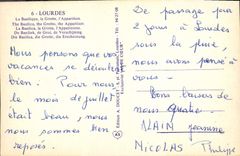 6 - LOURDES
La Basilique, la Grotte, l'Apparition.
The Basilica, the Grotto, the Apparition.
La Basílica, la Gruta, la Aparición.
De Basiliek, de Grot, de Verschijning
Die Basilika, die Grotte, die Erscheinung.
Nous pensons que vos
vacances se déroulent
bien. Pour nous
le mois de juillet
était beau, nous
nous sommes bien
reposés.
De passage pour
2 jours à Lourdes
sous la pluie
nous avons pensé à
vous.
Bons baisers de
nous Quatre
ALAIN Jeannine
NICOLAS Philippe